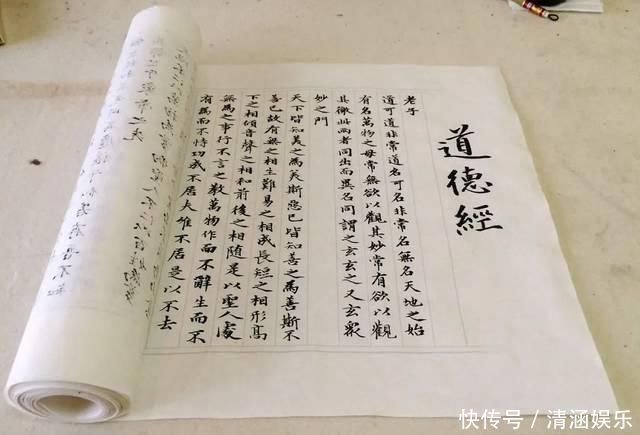 道德經
老子
道可道非常道名可名非常名無名天地之始
有名萬物之母常無欲以觀其妙常有欲以觀
其徼此兩者同出而異名同謂之玄玄之又玄衆
妙之門
天下皆知美之為美斯惡已皆知善之為善斯不
善已故有無之相生難易之相成長短之相形高
下之相傾音聲之相和前後之相随是以聖人處
無為之事行不言之教萬物作而不辭生而不
有為而不恃功成不居夫唯不居是以不去
快传号 / 清涵娱乐